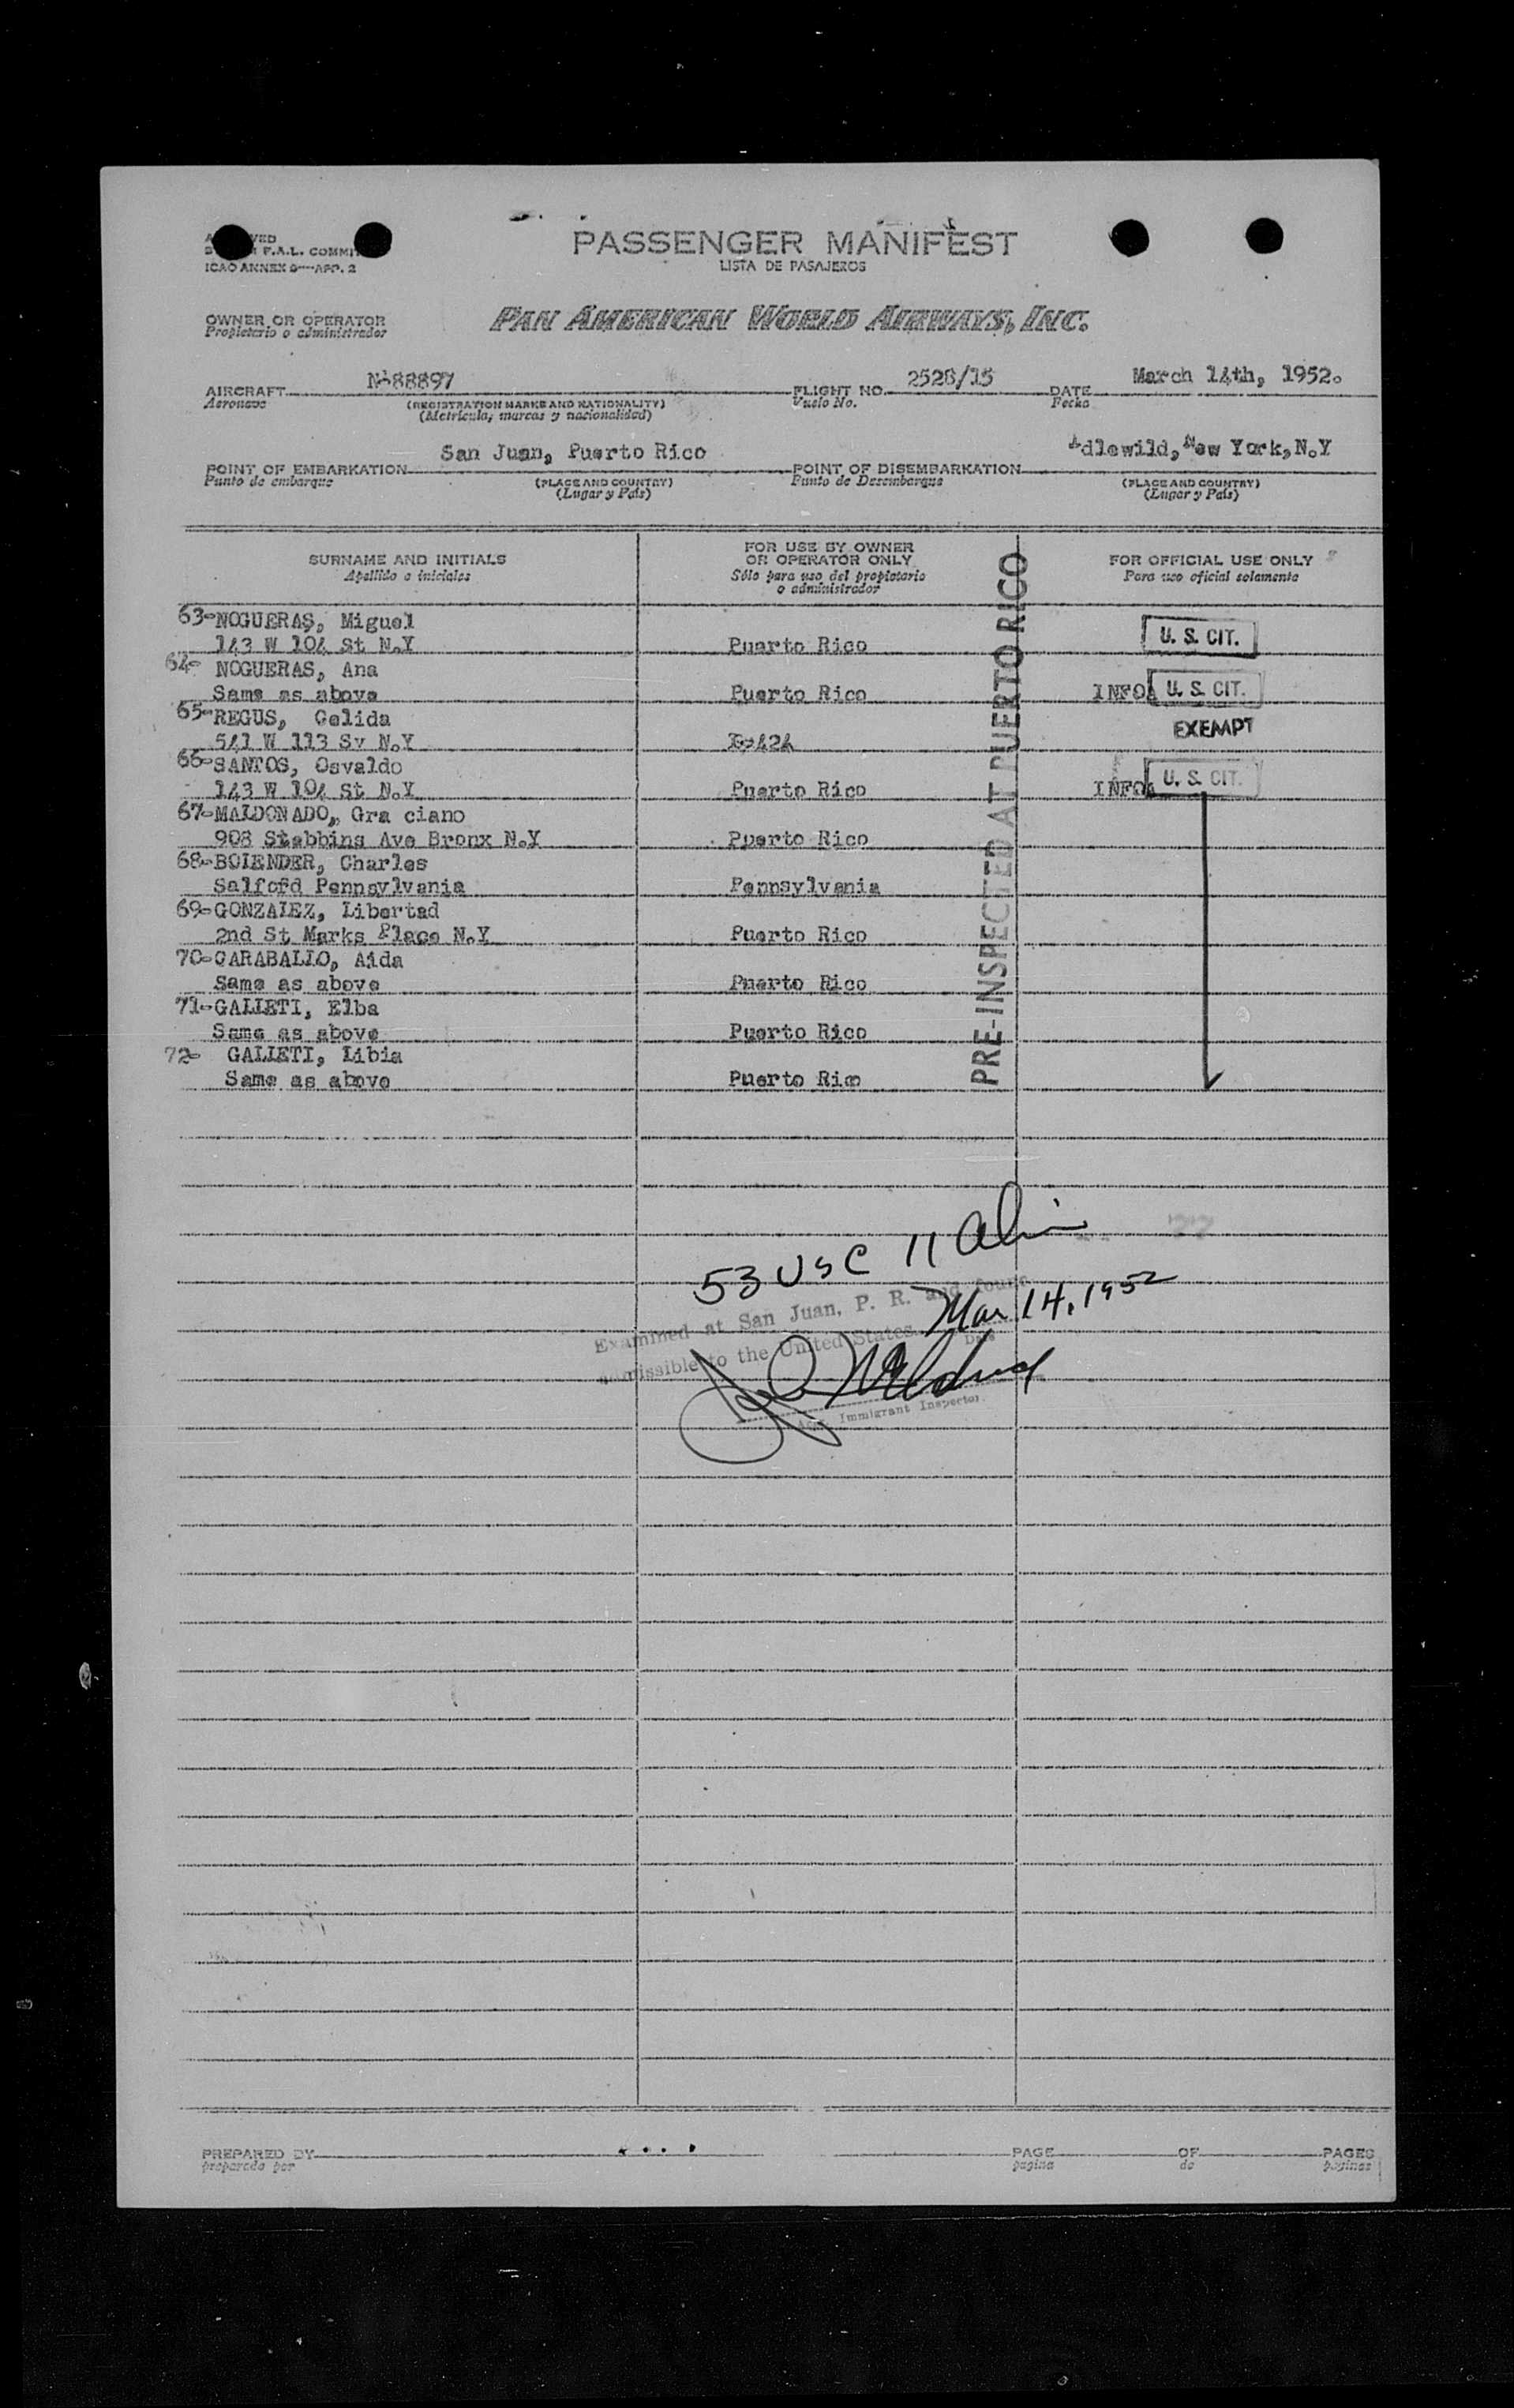 PASSENGER MANIFEST
LISTA DE PASAJEROS
F.A.L.
ICAO ANNEX 9—APP. 2
OWNER OR OPERATOR
Propietario o administrador
PAN AMERICAN WORLD AIRWAYS, INC.
AIRCRAFT N-88897 FLIGHT NO. 2526/15 DATE March 14th, 1952.
Aeronave (REGISTRATION MARKS AND NATIONALITY) Vuelo No. Fecha
(Matrícula, marcas y nacionalidad)
POINT OF EMBARKATION San Juan, Puerto Rico POINT OF DISEMBARKATION Idlewild, New York, N.Y
Punto de embarque (PLACE AND COUNTRY) Punto de Desembarque (PLACE AND COUNTRY)
(Lugar y País) (Lugar y País)
SURNAME AND INITIALS
Apellido e iniciales
FOR USE BY OWNER
OR OPERATOR ONLY
Sólo para uso del propietario
o administrador
FOR OFFICIAL USE ONLY
Para uso oficial solamente
PRE-INSPECTED AT PUERTO RICO
63-NOGUERAS, Miguel
143 W 104 St N.Y Puerto Rico U. S. CIT.
64- NOGUERAS, Ana
Same as above Puerto Rico INFO. U. S. CIT.
65-REGUS, Celida EXEMPT
541 W 113 Sv N.Y
66-SANTOS, Osvaldo
143 W 104 St N.Y Puerto Rico INFO. U. S. CIT.
67-MALDONADO, Gra ciano
908 Stebbins Ave Bronx N.Y Puerto Rico
68-BOLENDER, Charles
Salford Pennsylvania Pennsylvania
69-GONZALEZ, Libertad
2nd St Marks Place N.Y Puerto Rico
70-CARABALLO, Aida
Same as above Puerto Rico
71-GALLETI, Elba
Same as above Puerto Rico
72- GALLETI, Libia
Same as above Puerto Rico
53 USC 11 Alien
Mar 14, 1952
Examined at San Juan, P. R. and found
admissible to the United States. Date
Immigrant Inspector.
PREPARED BY PAGE OF PAGES
preparado por pagina de paginas